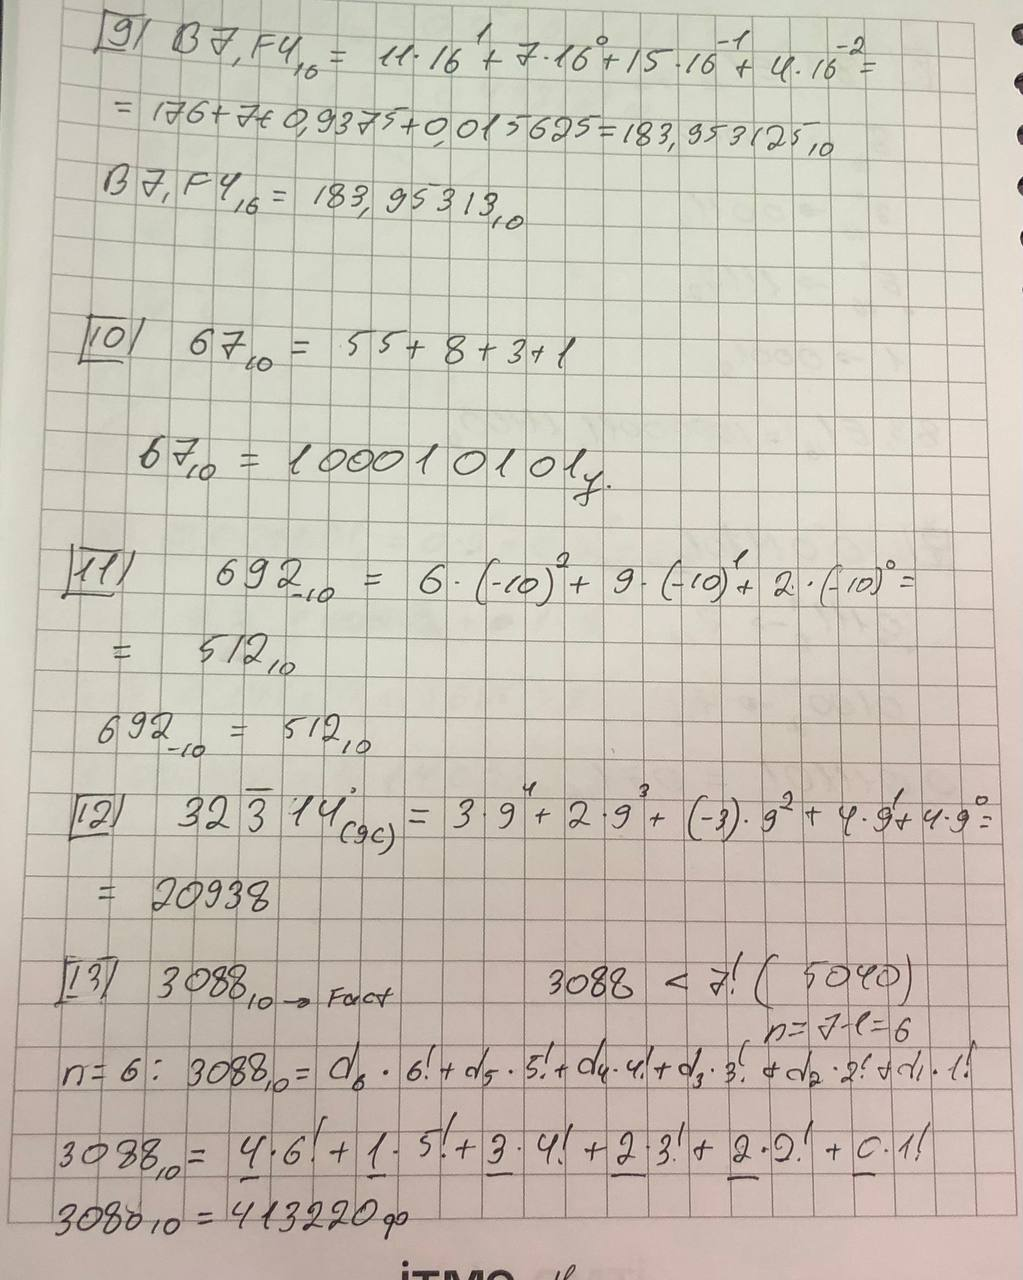 9) B7,F4₁₆ = 11·16¹ + 7·16⁰ + 15·16⁻¹ + 4·16⁻² =
= 176+7+0,9375+0,015625=183,953125₁₀
B7,F4₁₆ = 183,95313₁₀
10) 67₁₀ = 55+8+3+1
67₁₀ = 100010101
11) 692₋₁₀ = 6·(-10)² + 9·(-10)¹ + 2·(-10)⁰ =
= 512₁₀
692₋₁₀ = 512₁₀
12) 323̅14(9С) = 3·9⁴ + 2·9³ + (-3)·9² + 4·9¹ + 4·9⁰ =
= 20938
13) 3088₁₀ → Fact 3088 < 7! (5040)
n=7-1=6
n=6: 3088₁₀ = d₆·6! + d₅·5! + d₄·4! + d₃·3! + d₂·2! + d₁·1!
3088₁₀ = 4·6! + 1·5! + 3·4! + 2·3! + 2·2! + 0·1!
3088₁₀ = 413220ф
ITMO